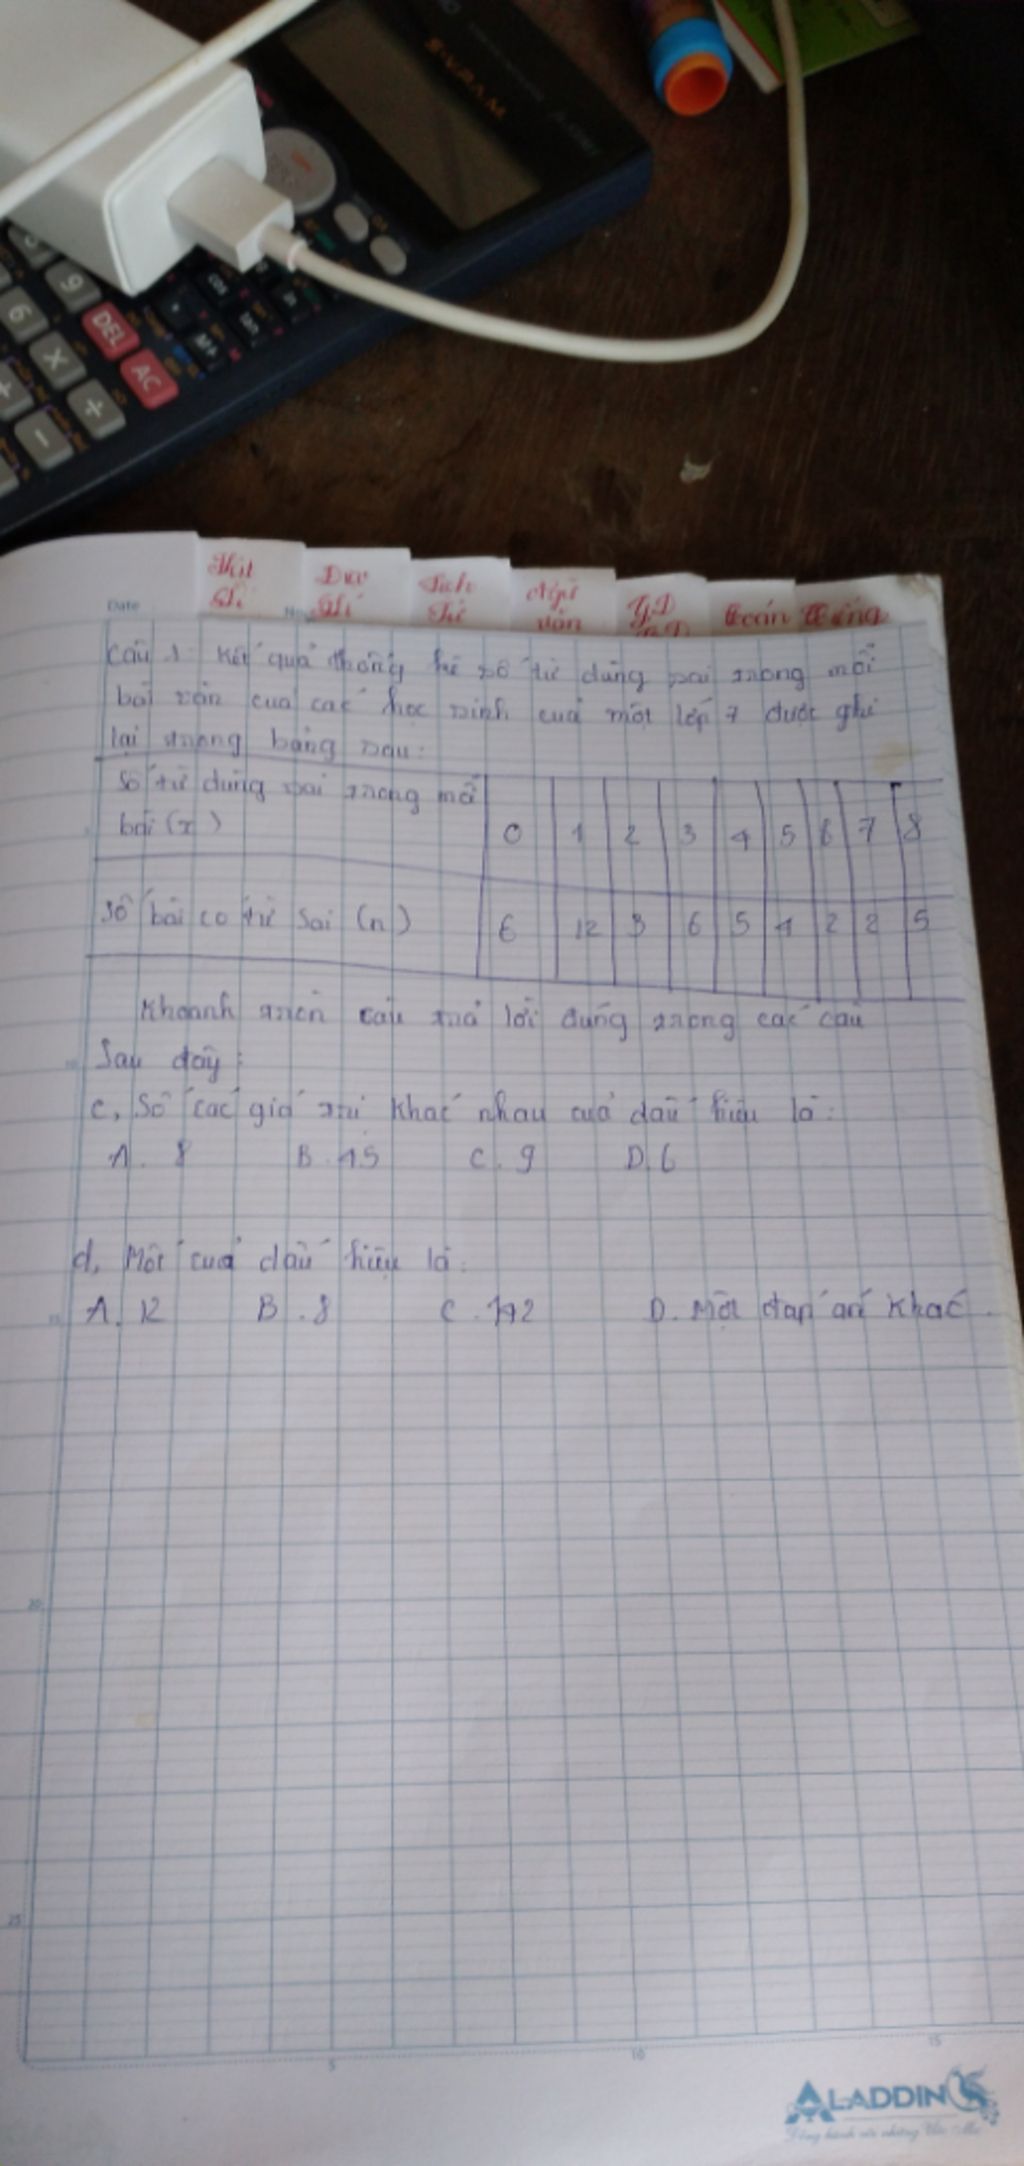 SVPAM
9
6
DEL
AC
M+
Date
Ngữ
văn
GD
Toán
Câu 1: Kết quả thống kê số từ dùng sai trong mỗi
bài văn của các học sinh của một lớp 7 được ghi
lại trong bảng sau:
Số từ dùng sai trong mỗi
bài (x) 0 1 2 3 4 5 6 7 8
Số bài có từ sai (n) 6 12 3 6 5 4 2 2 5
Khoanh tròn câu trả lời đúng trong các câu
sau đây:
c, Số các giá trị khác nhau của dấu hiệu là:
A. 8 B. 45 C. 9 D. 6
d, Mốt của dấu hiệu là:
A. 12 B. 8 C. 1 D. Một đáp án khác.
20
25
5
10
15
ALADDIN